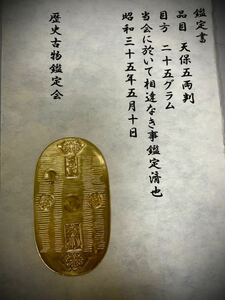 鑑定書
品目 天保五両判
目方 二十五グラム
当会に於いて相違なき事鑑定済也
昭和三十五年五月十日
歴史古物鑑定会